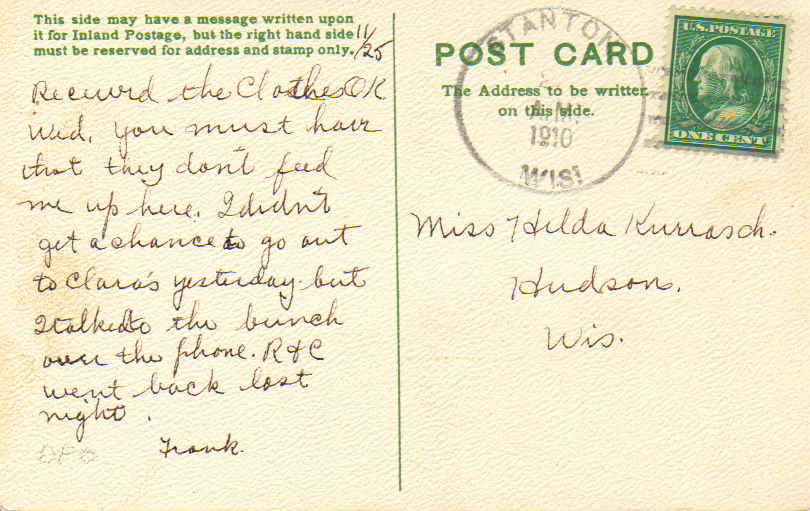 This side may have a message written upon
it for Inland Postage, but the right hand side
must be reserved for address and stamp only.
11/25
Recievrd the Clothes OK
Wed. you must have
that they don't feed
me up here. I didn't
get a chance to go out
to Clara's yesterday but
I talked to the bunch
over the phone. R & C
went back last
night.
Frank.
POST CARD
The Address to be written
on this side.
STANTON
A.M.
1910
WIS.
U.S. POSTAGE
ONE CENT
Miss Hilda Kurrasch.
Hudson.
Wis.